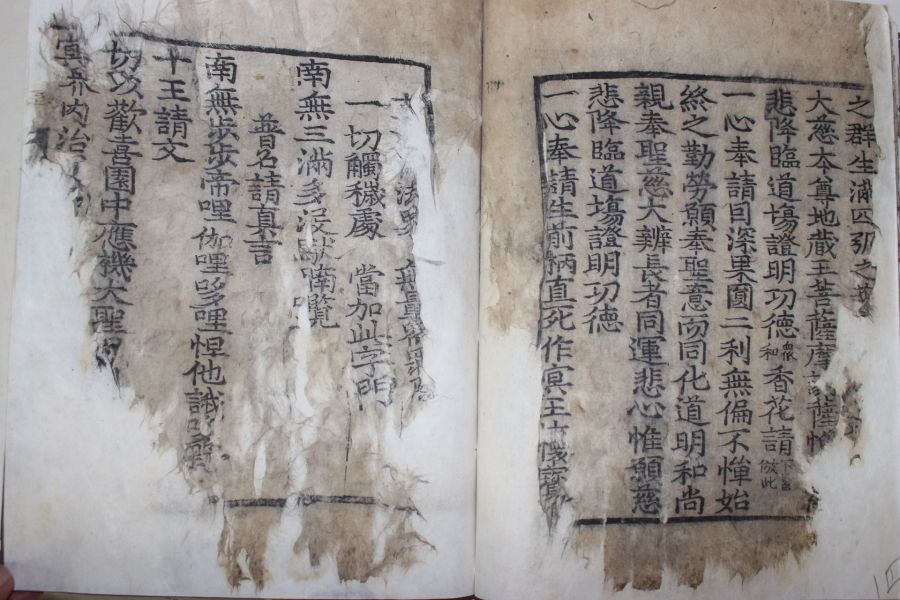 之群生滿四弘之
大慈本尊地藏王菩薩摩訶薩惟
悲降臨道場證明功德衆和香花請下皆倣此
一心奉請因深果圓二利無偏不憚始
終之勤勞願奉聖意而同化道明和尚
親奉聖慈大辨長者同運悲心惟願慈
悲降臨道場證明功德
一心奉請生前柄直死作冥王
法界
一切觸穢處 當加此字門
南無三滿多沒馱喃囕
普召請真言
南無步步帝哩伽哩哆哩怛他誐
十王請文
切以歡喜園中應機大聖
冥界內治